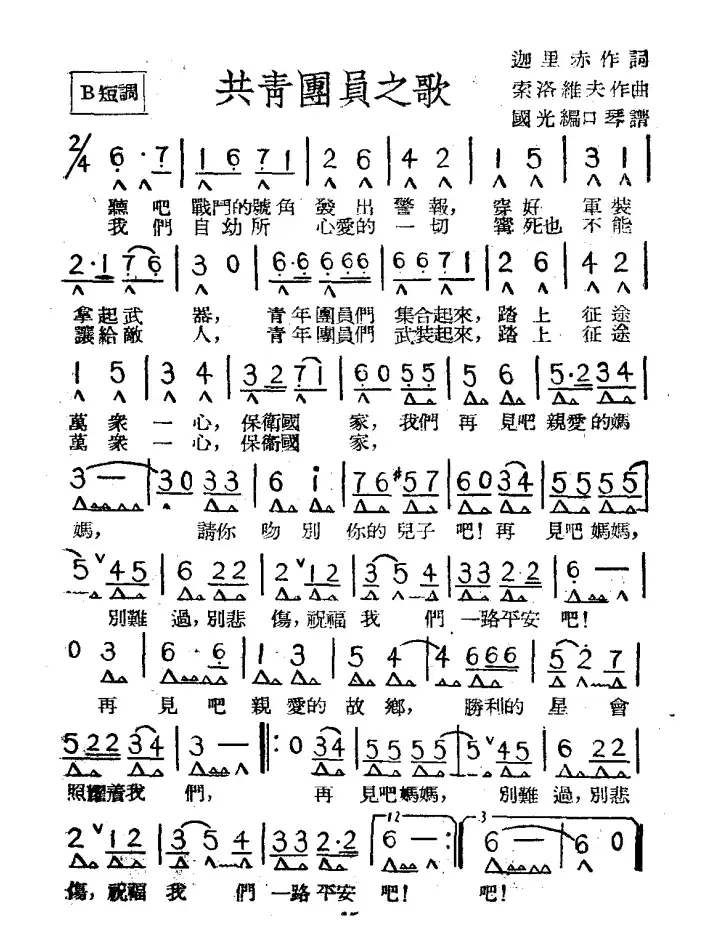 迦里赤作詞
B短調
共青團員之歌
索洛維夫作曲
國光編口琴譜
2/4 6·7 | 1 6 7 1 | 2 6 | 4 2 | 1 5 | 3 1 |
聽吧 戰鬥的號角 發出 警報, 穿好 軍裝
我們 自幼所 心愛的 一切 寗死也 不能
2·1 7 6 | 3 0 | 6·6 6 6 6 | 6 6 7 1 | 2 6 | 4 2 |
拿起武 器, 青年團員們 集合起來, 踏上 征途
讓給敵 人, 青年團員們 武裝起來, 踏上 征途
1 5 | 3 4 | 3 2 7 1 | 6 0 5 5 | 5 6 | 5·2 3 4 |
萬衆 一心, 保衛國 家, 我們 再見吧 親愛的媽
萬衆 一心, 保衛國 家,
3 — | 3 0 3 3 | 6 i | 7 6 #5 7 | 6 0 3 4 | 5 5 5 5 |
媽, 請你 吻別 你的兒子 吧! 再 見吧媽媽,
5 V 4 5 | 6 2 2 | 2 V 1 2 | 3 5 4 | 3 3 2·2 | 6 — |
別難 過, 別悲 傷, 祝福 我 們 一路平安 吧!
0 3 | 6·6 | 1 3 | 5 4 | 4 6 6 6 | 5 2 7 |
再 見吧 親愛的 故鄉, 勝利的 星會
5 2 2 3 4 | 3 — |: 0 3 4 | 5 5 5 5 | 5 V 4 5 | 6 2 2 |
照耀着我 們, 再 見吧媽媽, 別難 過, 別悲
2 V 1 2 | 3 5 4 | 3 3 2·2 | 12 6 — :| 3 6 — | 6 0 |
傷, 祝福 我 們 一路平安 吧! 吧!